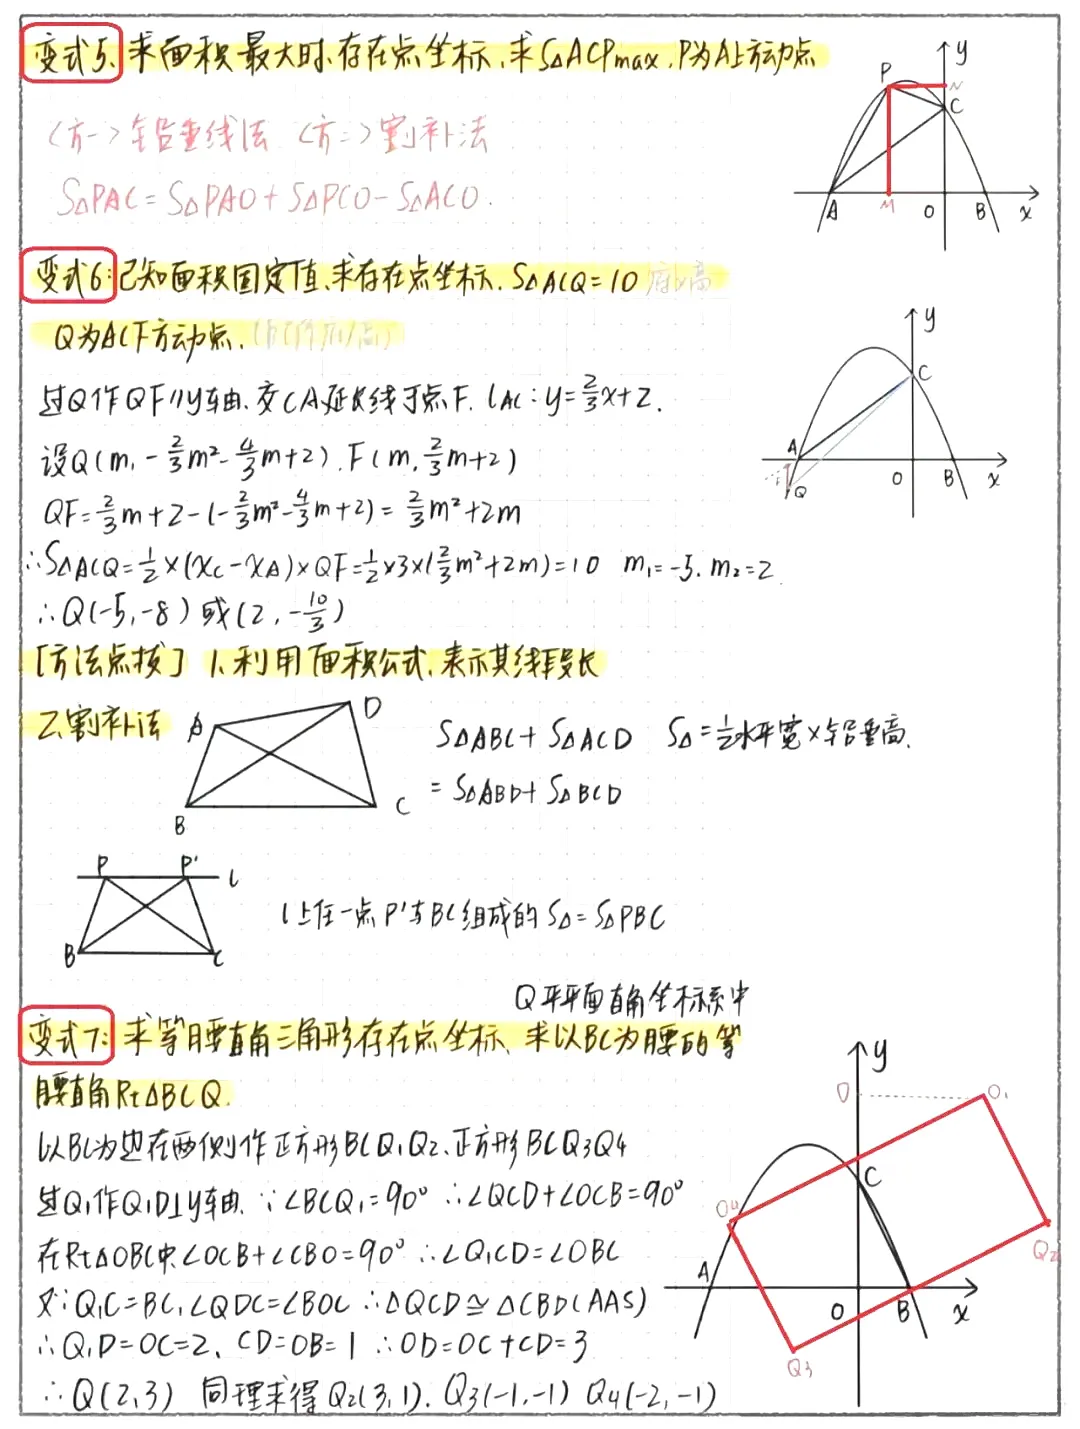 变式5、求面积最大时、存在点坐标、求S△ACPmax,P为A上方动点
<方一>铅垂线法 <方二>割补法
S△PAC=S△PAO+S△PCO-S△ACO.
y
P
N
C
A
M
O
B
x
变式6:已知面积固定值、求存在点坐标、S△ACQ=10
Q为AC下方动点、
过Q作QF∥y轴、交CA延长线于点F. lAC:y=2/3x+2.
设Q(m,-2/3m²-4/3m+2).F(m,2/3m+2)
QF=2/3m+2-(-2/3m²-4/3m+2)=2/3m²+2m
∴S△ACQ=1/2×(xC-xA)×QF=1/2×3×(2/3m²+2m)=10 m1=-5、m2=2
∴Q(-5,-8)或(2,-10/3)
y
C
A
Q
O
B
x
[方法点拨] 1、利用面积公式、表示其线段长
2、割补法
A
D
B
C
S△ABC+S△ACD S△=1/2水平宽×铅垂高.
=S△ABD+S△BCD
P
P'
l
B
C
l上任一点P'与BC组成的S△=S△PBC
Q平平面直角坐标系中
变式7:求等腰直角三角形存在点坐标、求以BC为腰的等
腰直角Rt△BCQ.
以BC为边在两侧作正方形BCQ1Q2、正方形BCQ3Q4
过Q1作Q1D⊥y轴、∵∠BCQ1=90° ∴∠QCD+∠OCB=90°
在Rt△OBC中、∠OCB+∠CBO=90° ∴∠Q1CD=∠OBC
又∵Q1C=BC,∠QDC=∠BOC ∴△QCD≌△CBD(AAS)
∴Q1D=OC=2、CD=OB=1 ∴OD=OC+CD=3
∴Q(2,3) 同理求得Q2(3,1). Q3(-1,-1) Q4(-2,-1)
y
D
Q1
C
Q4
Q2
A
O
B
x
Q3